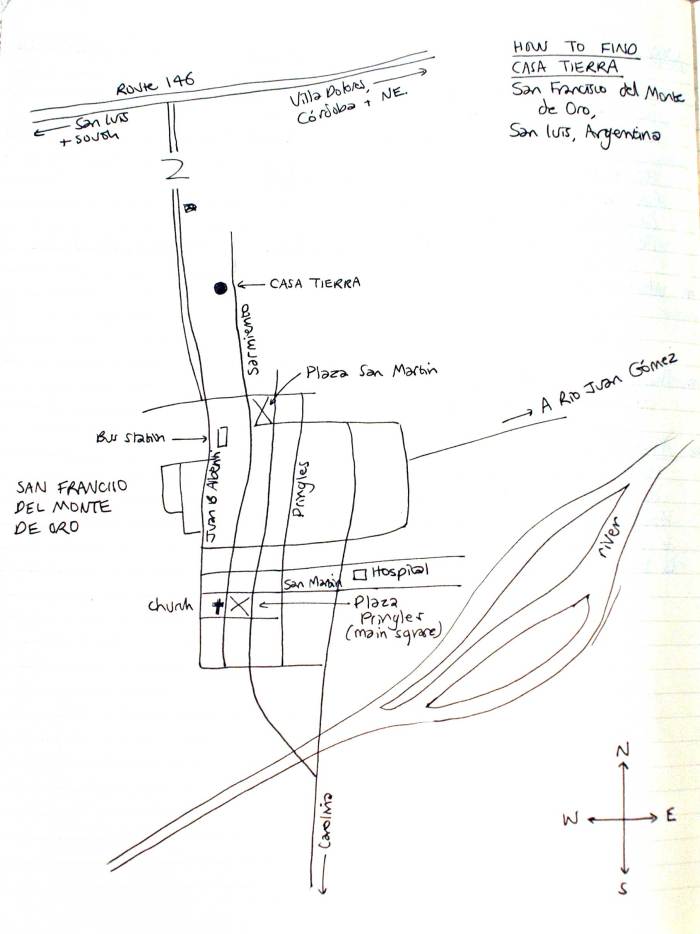 HOW TO FIND
CASA TIERRA
San Francisco del Monte
de Oro,
San Luis, Argentina
Route 146
San Luis
+ south
Villa Dolores,
Córdoba + NE.
CASA TIERRA
Sarmiento
Plaza San Martin
A Rio Juan Gómez
Bus station
Juan B Alberdi
Pringles
SAN FRANCISO
DEL MONTE
DE ORO
river
San Martin
Hospital
Church
Plaza
Pringles
(main square)
Carolina
N
W
E
S